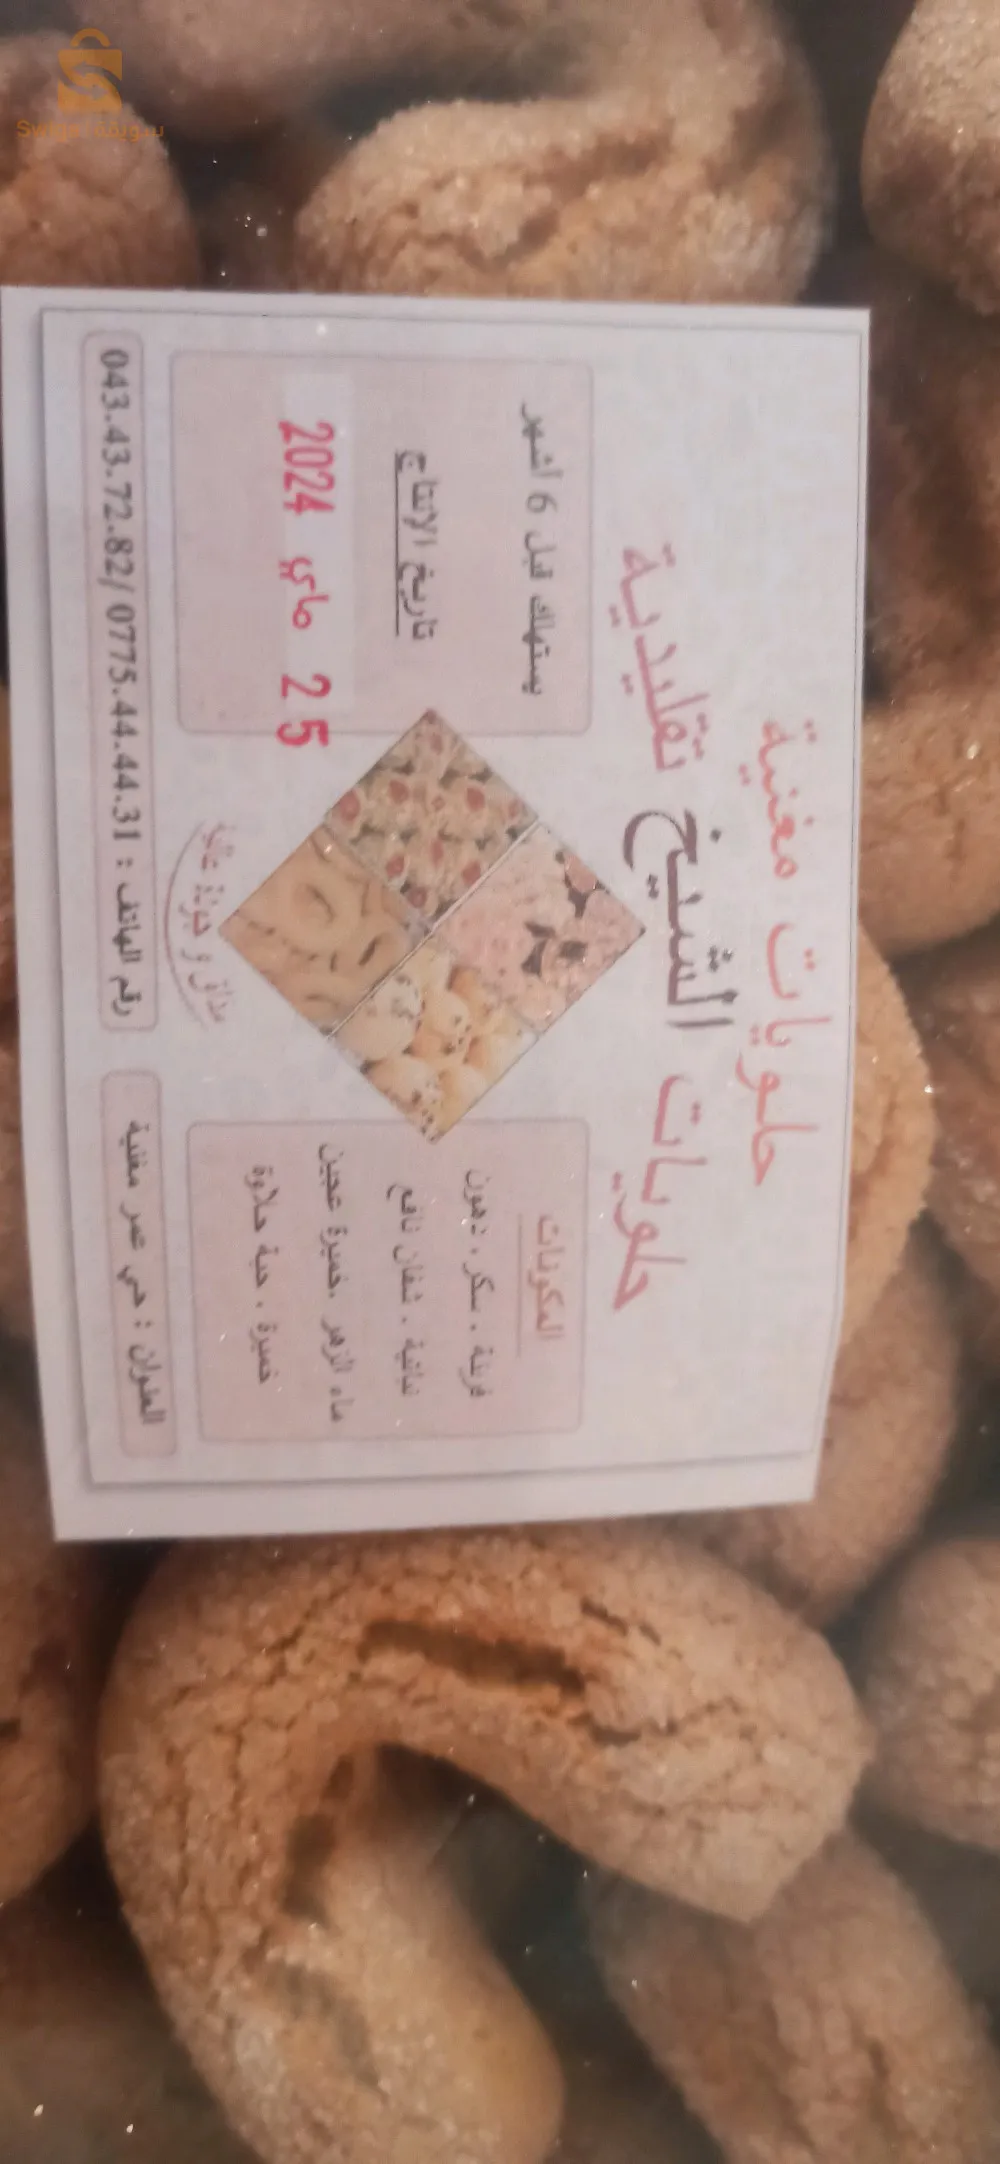 سويقة Swiqa
حلويات مغنية
حلويات الشيخ تقليدية
المكونات
فرينة . سكر . دهون
نباتية . شفان نافع
ماء الزهر .خميرة عجين
خميرة . حبة حلاوة
يستهلك قبل 6 أشهر
تاريخ الإنتاج
25 ماي 2024
مذاق و جودة عالية
العنوان : حي عمر مغنية
رقم الهاتف : 043.43.72.82/ 0775.44.44.31